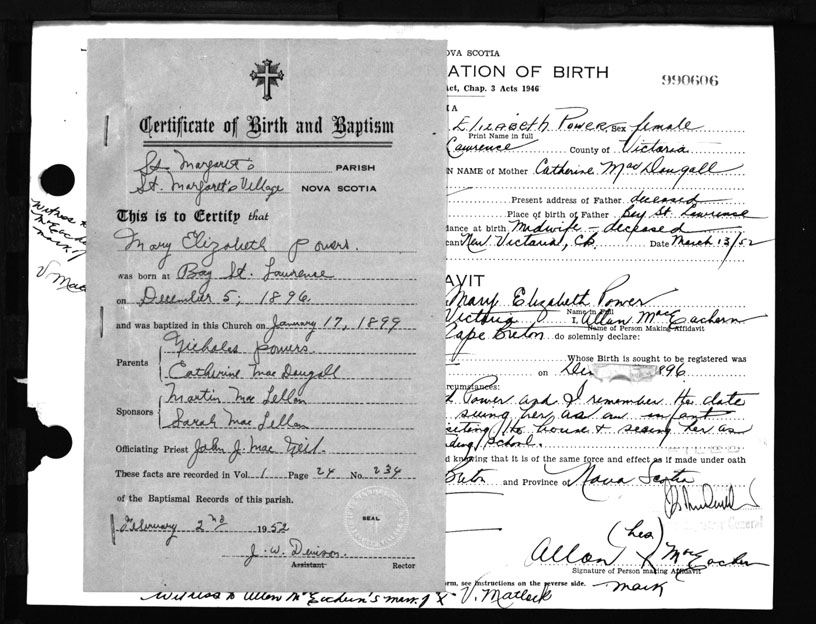 Certificate of Birth and Baptism
St. Margaret's PARISH
St. Margaret's Village NOVA SCOTIA
This is to Certify that
Mary Elizabeth Powers.
was born at Bay St. Lawrence
on December 5, 1896.
and was baptized in this Church on January 17, 1899
Parents
Nicholas Powers
Catherine Mac Dougall
Sponsors
Martin Mac Lellan
Sarah Mac Lellan
Officiating Priest John J. Mac Neil.
These facts are recorded in Vol. 1 Page 24 No. 234
of the Baptismal Records of this parish.
February 2nd 1952
SEAL
J. W. Denison.
Assistant Rector
OVA SCOTIA
ATION OF BIRTH
990606
Act, Chap. 3 Acts 1946
IA
ELIZABETH POWER, Sex female
Print Name in full
Lawrence County of Victoria
N NAME of Mother Catherine Mac Dougall
Present address of Father deceased
Place of birth of Father Bay St. Lawrence
dance at birth Midwife - deceased
cant New Victoria, C.B. Date March 13/52
AVIT
Mary Elizabeth Power
Name in Full
Victoria I, Allan MacEachern
Name of Person Making Affidavit
Cape Breton do solemnly declare:
Whose Birth is sought to be registered was
on Dec 896
rcumstances:
d Power and I remember the date
seeing her as an infant
visiting the house & seeing her as
ding school.
d knowing that it is of the same force and effect as if made under oath
Breton and Province of Nova Scotia
General
Allan (his) X MacEachern
Signature of Person making Affidavit
mark
orm, see instructions on the reverse side.
Witness to Allan McEachern's mark X V. Matlock
Witness to
McEachern
mark
V. Mat